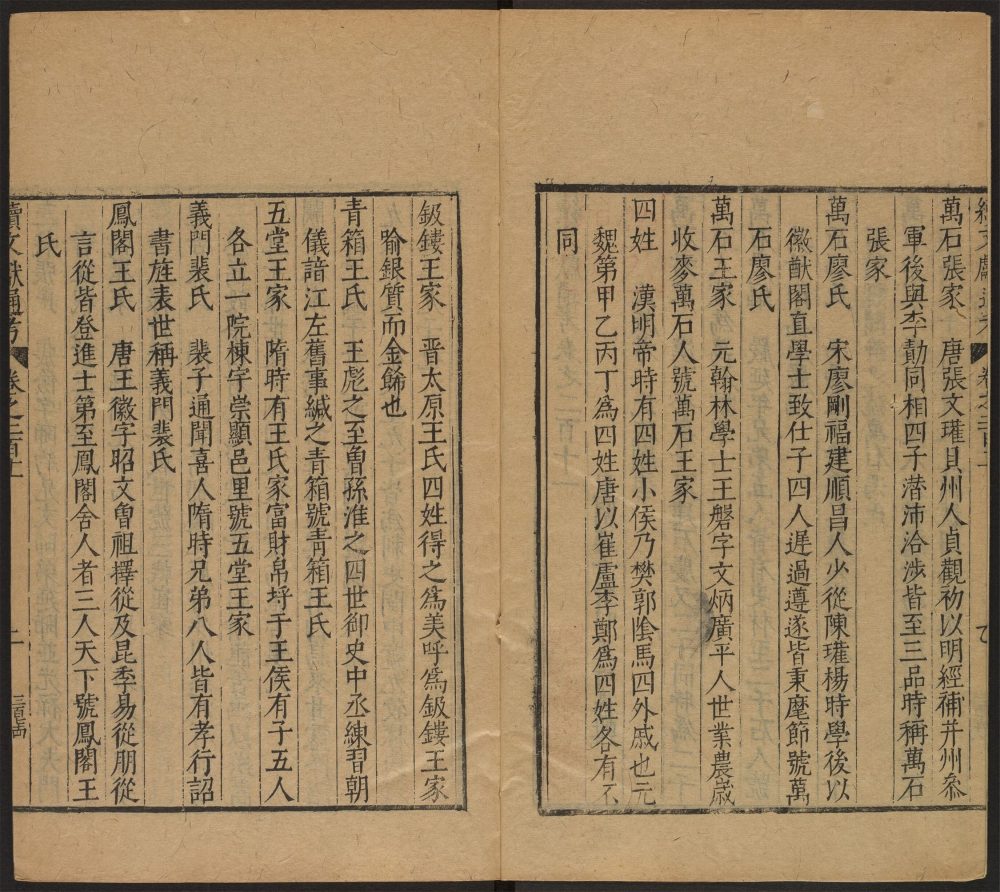 萬石張家　唐張文瓘貝州人貞觀初以明經補并州叅
軍後與李勣同相四子潛沛洽涉皆至三品時稱萬石
張家
萬石廖氏　宋廖剛福建順昌人少從陳瓘楊時學後以
徽猷閣直學士致仕子四人遲過遵遂皆秉麾節號萬
石廖氏
萬石王家　元翰林學士王磐字文炳廣平人世業農歲
收麥萬石人號萬石王家
四姓　漢明帝時有四姓小侯乃樊郭陰馬四外戚也元
魏第甲乙丙丁爲四姓唐以崔盧李鄭爲四姓各有不
同
鈒鏤王家　晋太原王氏四姓得之爲美呼爲鈒鏤王家
喻銀質而金餙也
青箱王氏　王彪之至曾孫淮之四世御史中丞練習朝
儀諳江左舊事緘之青箱號青箱王氏
五堂王家　隋時有王氏家富財帛埒于王侯有子五人
各立一院棟宇崇顯邑里號五堂王家
義門裴氏　裴子通聞喜人隋時兄弟八人皆有孝行詔
書旌表世稱義門裴氏
鳳閣王氏　唐王徽字昭文曾祖擇從及昆季易從朋從
言從皆登進士第至鳳閣舍人者三人天下號鳳閣王
氏
續文獻通考　卷之二百十　二